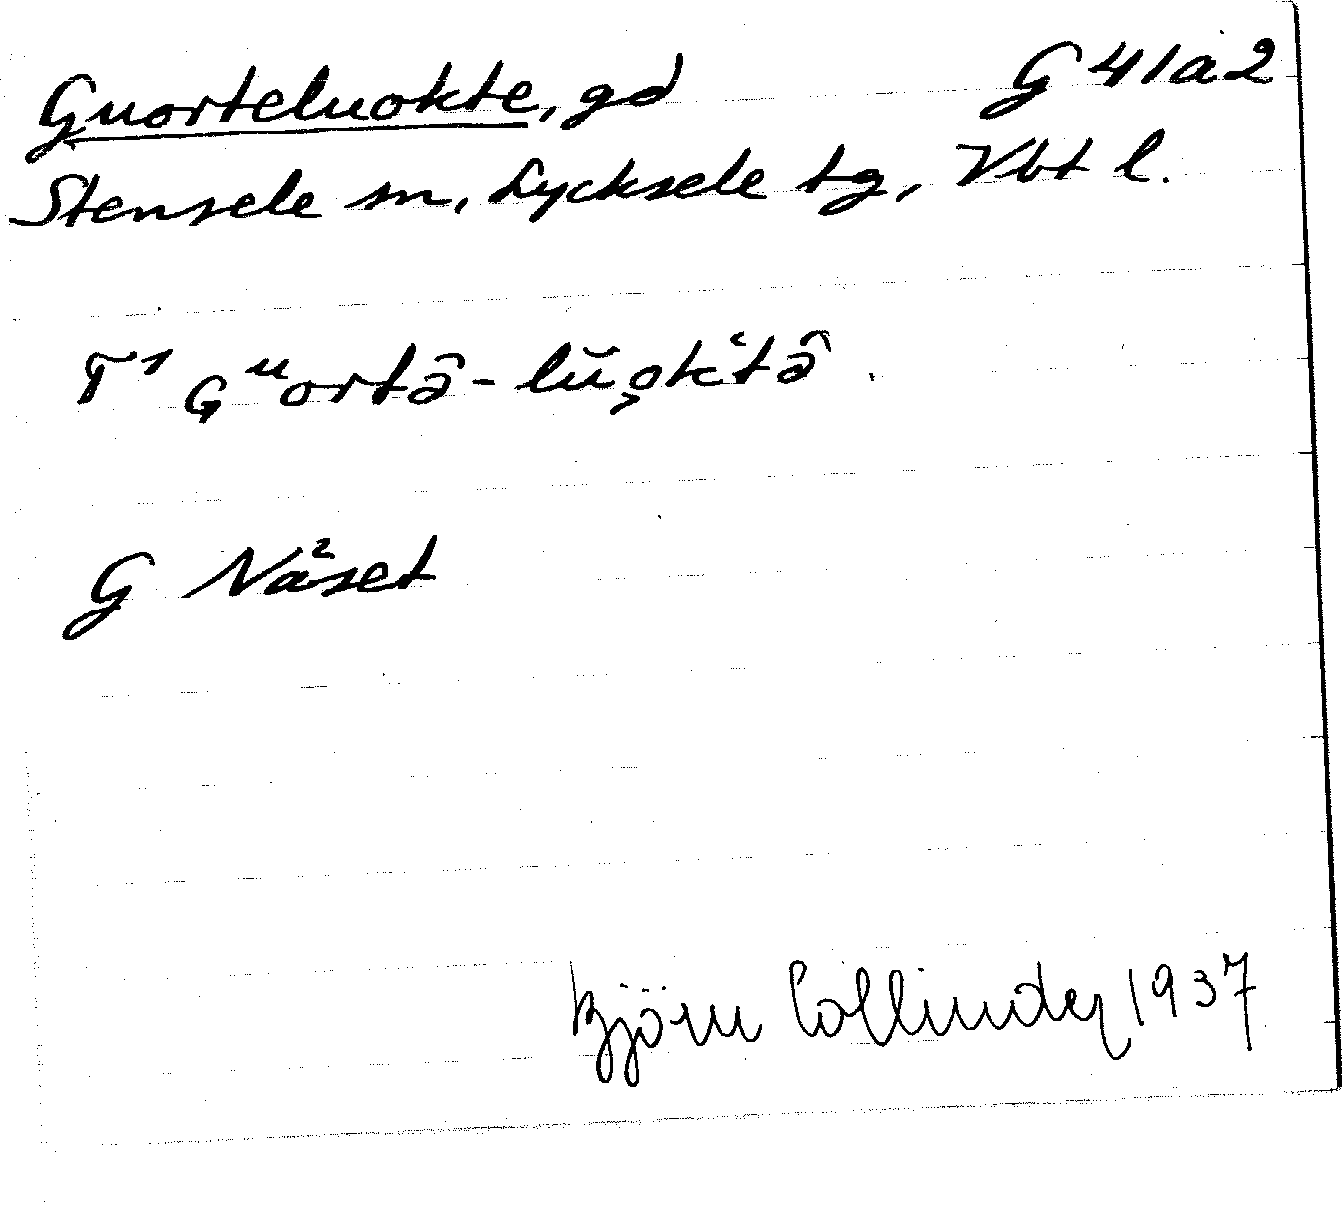 Guorteluokte, gd G 41 a 2
Stensele sn, Lycksele tg, Vbt l.
T¹ Gᵘortâ-lŭo̧kʿtâ.
G Näset
Björn Collinder 1937